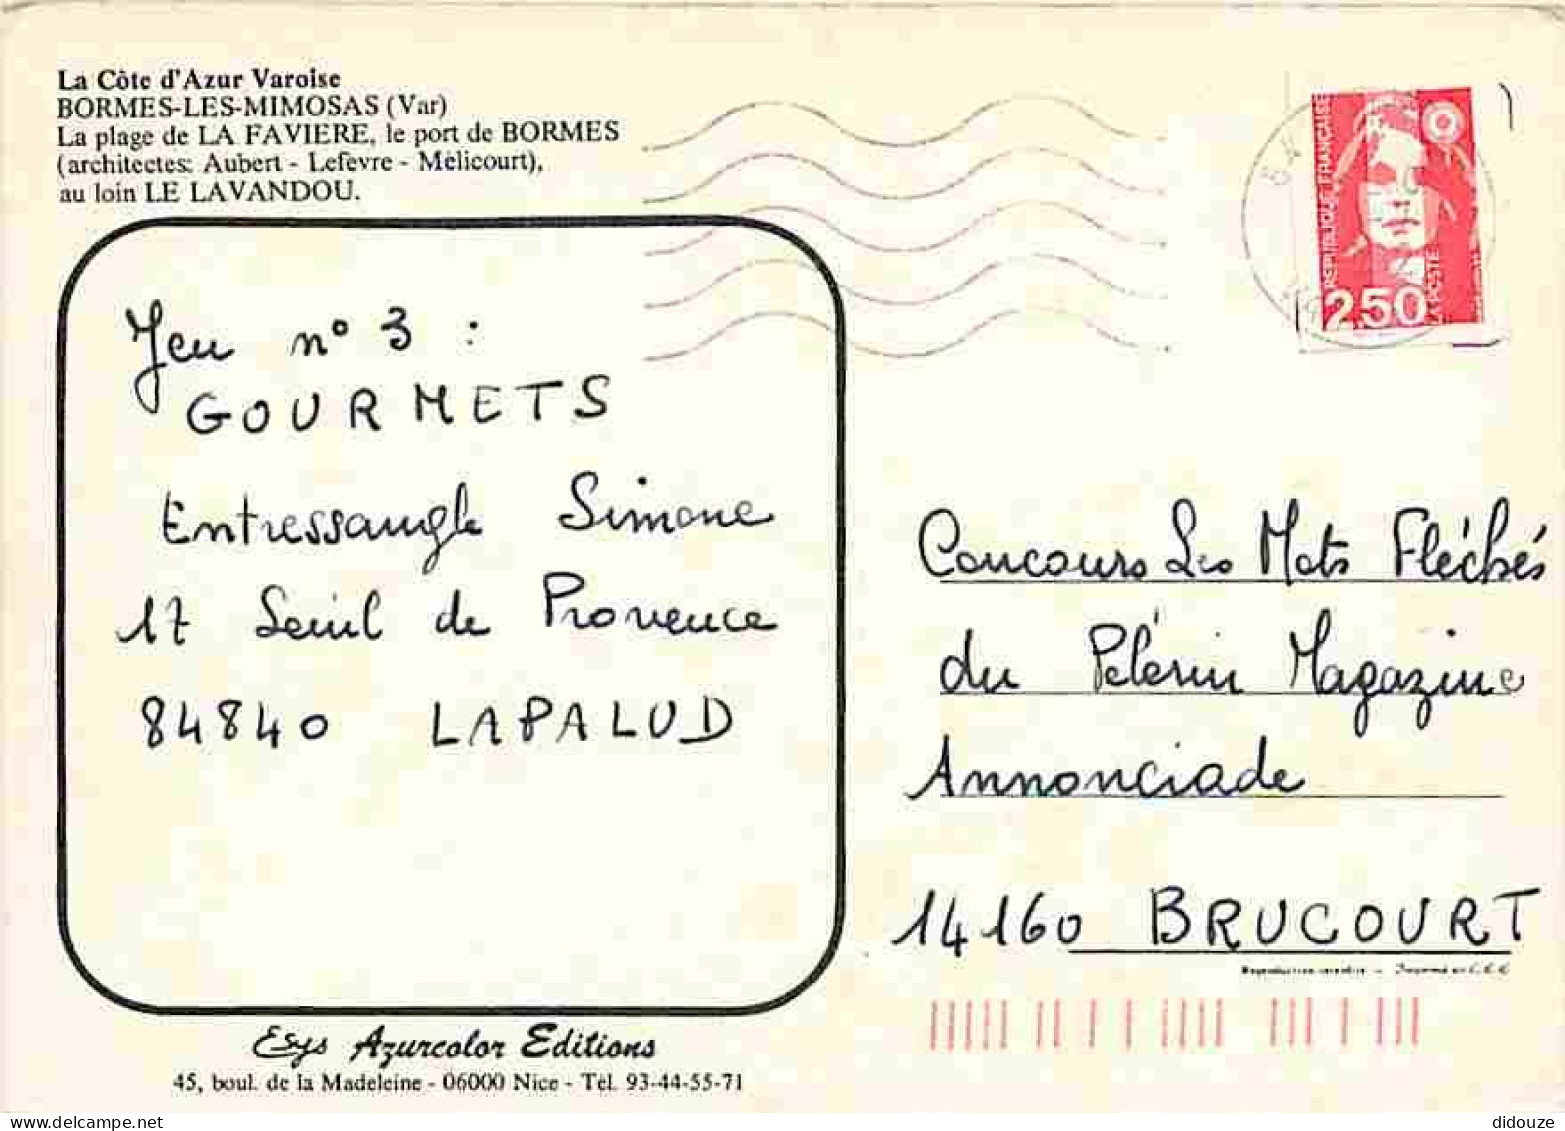 La Côte d'Azur Varoise
BORMES-LES-MIMOSAS (Var)
La plage de LA FAVIERE, le port de BORMES
(architectes: Aubert - Lefèvre - Mèlicourt),
au loin LE LAVANDOU.
REPUBLIQUE FRANÇAISE
2,50
LA POSTE
Jeu n° 3 :
GOURMETS
Entressangle Simone
17 Seuil de Provence
84840 LAPALUD
Concours Les Mots Fléchés
du Pélerin Magazine
Annonciade
14160 BRUCOURT
Reproduction interdite -
Esys Azurcolor Editions
45, boul. de la Madeleine - 06000 Nice - Tél. 93-44-55-71
didouze